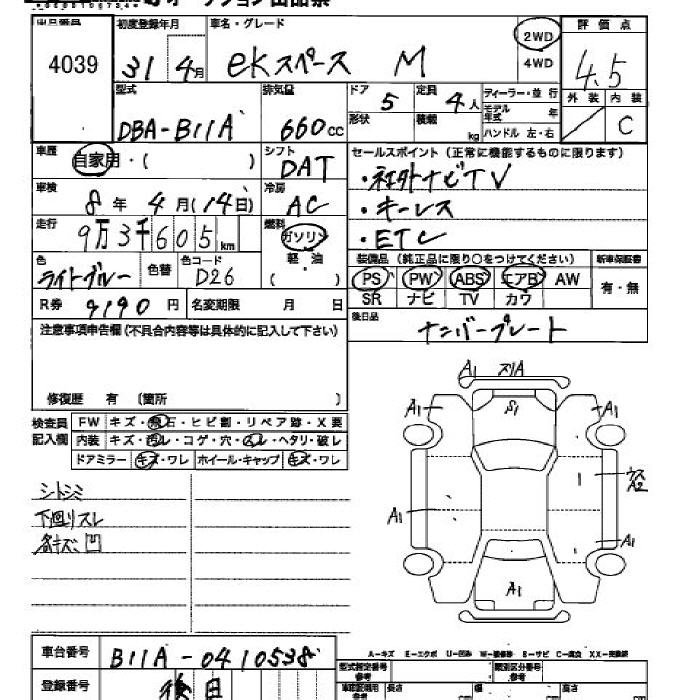 出品番号 初度登録年月 車名・グレード 2WD 評価点
4039 31 4月 eKスペース M 4WD 4.5
型式 排気量 ドア 5 定員 4人 ディーラー・並行 外装 内装
DBA-B11A 660cc 形状 積載 kg モデル年式 年 C
ハンドル 左・右
車歴 自家用・( ) シフト DAT セールスポイント (正常に機能するものに限ります)
車検 8年 4月(14日) 冷房 AC ・社外ナビTV
・キーレス
走行 9万3千605km 燃料 ガソリン ・ETC
軽・油
( )
色 ライトブルー 色替 色コード D26 装備品 (純正品に限り○をつけてください) 新車保証書
PS PW ABS エアB AW 有・無
R券 9190円 名変期限 月 日 SR ナビ TV カワ
注意事項申告欄 (不具合内容等は具体的に記入して下さい) 後日品 ナンバープレート
修復歴 有 〔箇所 〕
検査員記入欄 FW キズ・飛石・ヒビ割・リペア跡・X要
内装 キズ・汚レ・コゲ・穴・スレ・ヘタリ・破レ
ドアミラー キズ・ワレ ホイール・キャップ キズ・ワレ
A1 スリA
A1 S1 A1
ウス
A2
A1
A1
A1
シトシミ
下廻りスレ
各キズ、凹
A-キズ E-エクボ U-凹み W-補修跡 S-サビ C-腐食 XX-交換済
車台番号 B11A-0410538
登録番号 後日
型式指定番号 類別区分番号
長さ cm 幅 cm 高さ cm